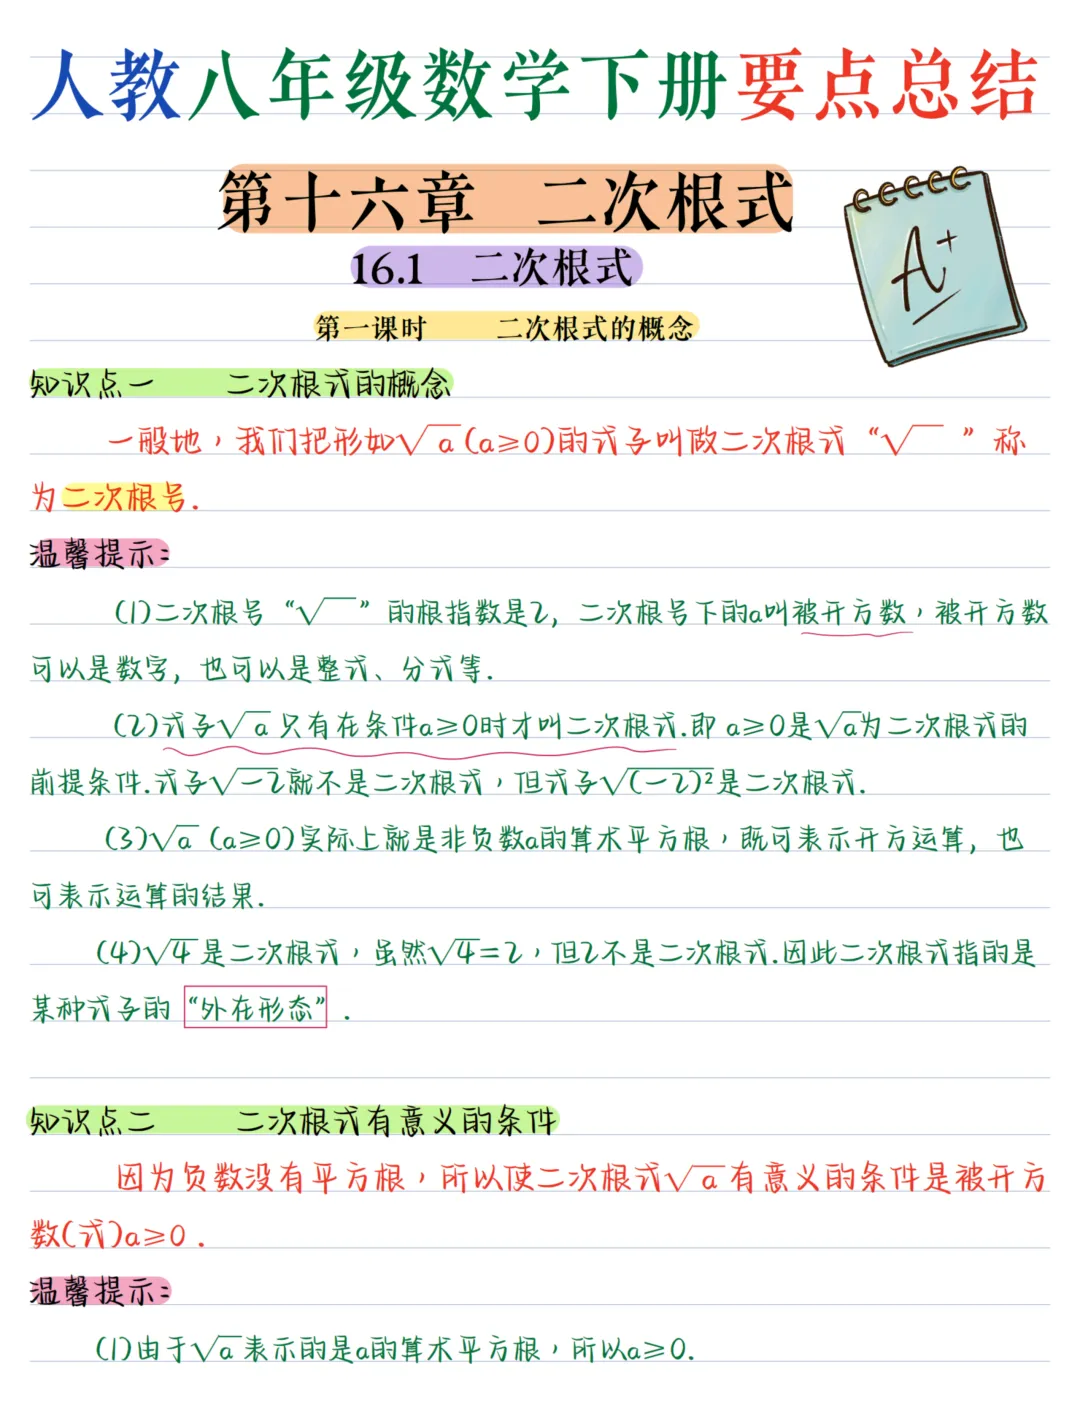 人教八年级数学下册要点总结
第十六章 二次根式
16.1 二次根式
A+
第一课时 二次根式的概念
知识点一 二次根式的概念
一般地，我们把形如√a(a≥0)的式子叫做二次根式“√ ”称
为二次根号.
温馨提示:
(1)二次根号“√ ”的根指数是2, 二次根号下的a叫被开方数，被开方数
可以是数字, 也可以是整式、分式等.
(2)式子√a只有在条件a≥0时才叫二次根式.即 a≥0是√a为二次根式的
前提条件.式子√-2就不是二次根式，但式子√(-2)²是二次根式.
(3)√a (a≥0)实际上就是非负数a的算术平方根，既可表示开方运算, 也
可表示运算的结果.
(4)√4是二次根式，虽然√4=2，但2不是二次根式.因此二次根式指的是
某种式子的“外在形态”.
知识点二 二次根式有意义的条件
因为负数没有平方根，所以使二次根式√a有意义的条件是被开方
数(式)a≥0.
温馨提示:
(1)由于√a表示的是a的算术平方根，所以a≥0.